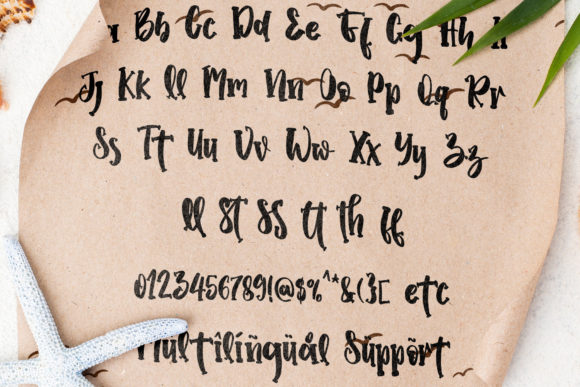 a Bb Cc Dd Ee Ff Gg Hh
Jj Kk Ll Mm Nn Oo Pp Qq Rr
Ss Tt Uu Vv Ww Xx Yy Zz
ll ST SS tt th ff
0123456789!@$%^*&(}[ etc
Multîlíñgüål Sùppõrt